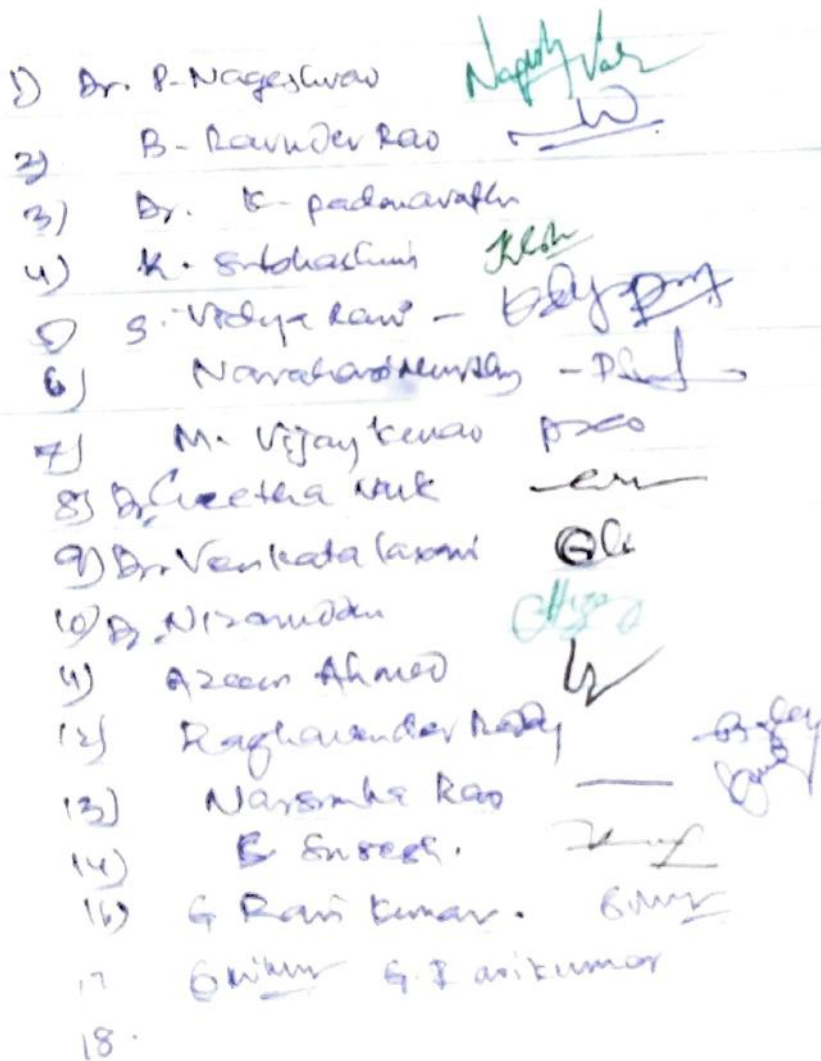 1) Dr. P. Nageshwar
2) B. Ravinder Rao
3) Dr. K. padmavathi
4) K. Subhashini
5) S. Vidya Rani -
6) Narahari Murthy -
7) M. Vijay Kumar
8) Dr. Geetha Naik
9) Dr. Venkata laxmi
10) Dr. Nizamuddin
11) Azeem Ahmed
12) Raghavender Reddy
13) Narsimha Rao
14) B. Suresh.
16) G Ravi Kumar.
17 G. Ravikumar
18.